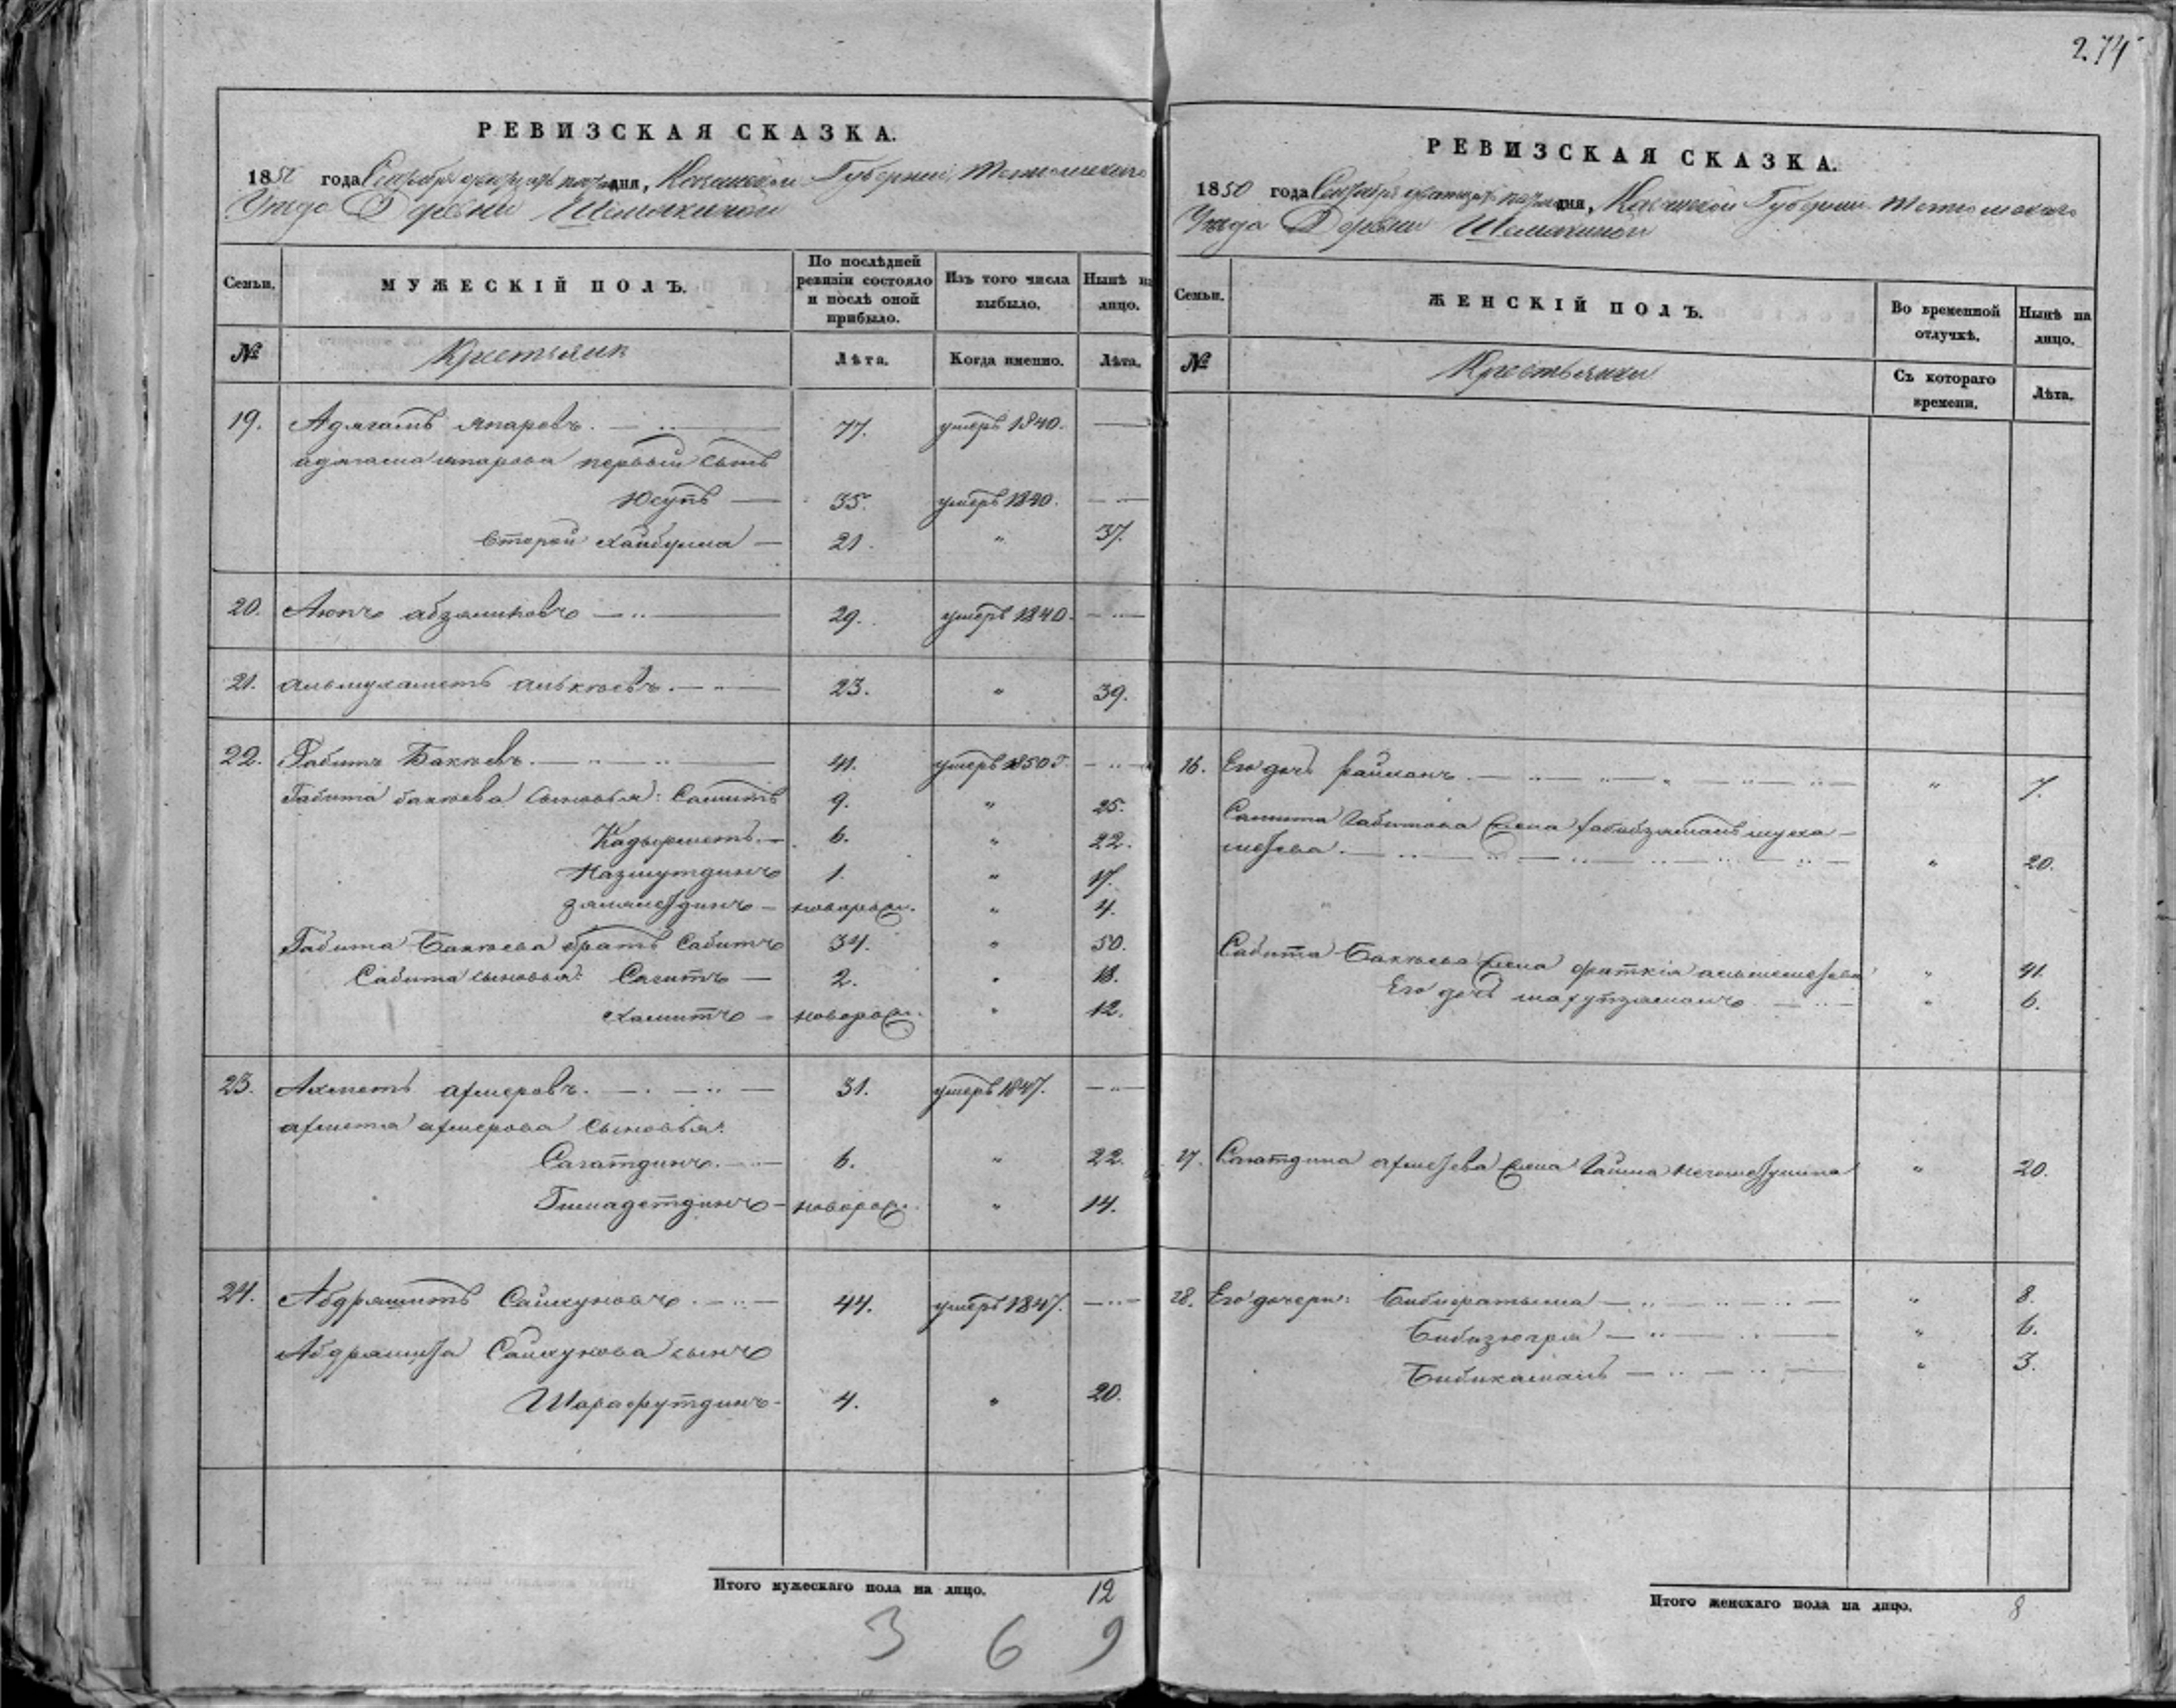 274
РЕВИЗСКАЯ СКАЗКА.
1850 года Сентября двадцать дня, Казанской Губернии, Тетюшскаго
Уезда Деревни Шемякиной
Семьи. МУЖЕСКІЙ ПОЛЪ. По послѣдней ревизіи состояло и послѣ оной прибыло. Изъ того числа выбыло. Нынѣ на лицо.
№ Крестьянъ Лѣта. Когда именно. Лѣта.
19. Адягамъ Япаровъ. 77. умеръ 1840.
адягама япарова первый сынъ
Юсупъ 35. умеръ 1840.
второй хайбулла 21. " 37.
20. Аюпъ абзялиловъ 29. умеръ 1840.
21. альмухаметъ алькѣевъ. 23. " 39.
22. Габитъ Бакѣевъ. 41. умеръ 1850 г.
Габита бакѣева сыновья: Самитъ 9. " 25.
Кадырметъ. 6. " 22.
Назмутдинъ 1. " 17.
новорож. " 4.
Габита Бакѣева братъ Сабитъ 34. " 50.
Сабита сыновья: Сагитъ 2. " 18.
хамитъ новорож. " 12.
23. Ахметъ ахмеровъ. 31. умеръ 1847.
ахмета ахмерова сыновья:
Сагатдинъ. 6. " 22.
Гимадетдинъ новорож. " 14.
24. Абдряшитъ Сайкуновъ 44. умеръ 1847.
Абдряшита Сайкунова сынъ
Шарафутдинъ 4. " 20.
Итого мужескаго пола на лицо. 12
3 6 9
РЕВИЗСКАЯ СКАЗКА.
1850 года Сентября двадцать дня, Казанской Губернии Тетюшскаго
Уезда Деревни Шемякиной
Семьи. ЖЕНСКІЙ ПОЛЪ. Во временной отлучкѣ. Нынѣ на лицо.
№ Крестьянки Съ котораго времени. Лѣта.
16. Его дочь райханъ. " 7.
Самита Габитова жена
" 20.
Сабита Бакѣева жена " 41.
Его дочь " 6.
27. Сагатдина ахметева жена " 20.
28. Его дочери: " 8.
Бибизюгря " 6.
Бибикамалъ " 3.
Итого женскаго пола на лицо. 8